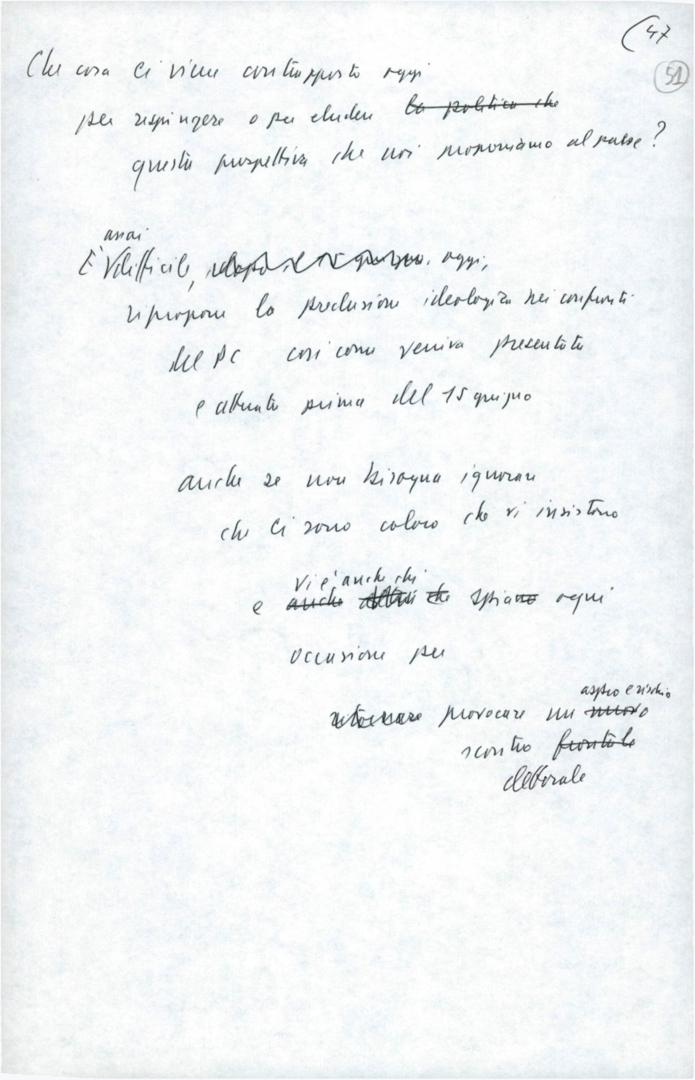 47
51
Che cosa ci viene contrapposto oggi
per respingere o per eludere la politica che
questa prospettiva che noi proponiamo al paese?
assai
È difficile, oggi,
riproporre la preclusione ideologica nei confronti
del PC così come veniva presentata
e attuata prima del 15 giugno
anche se non bisogna ignorare
che ci sono coloro che vi insistono
vi è anche chi
e anche altri che spiano ogni
occasione per
provocare un nuovo
scontro frontale
elettorale